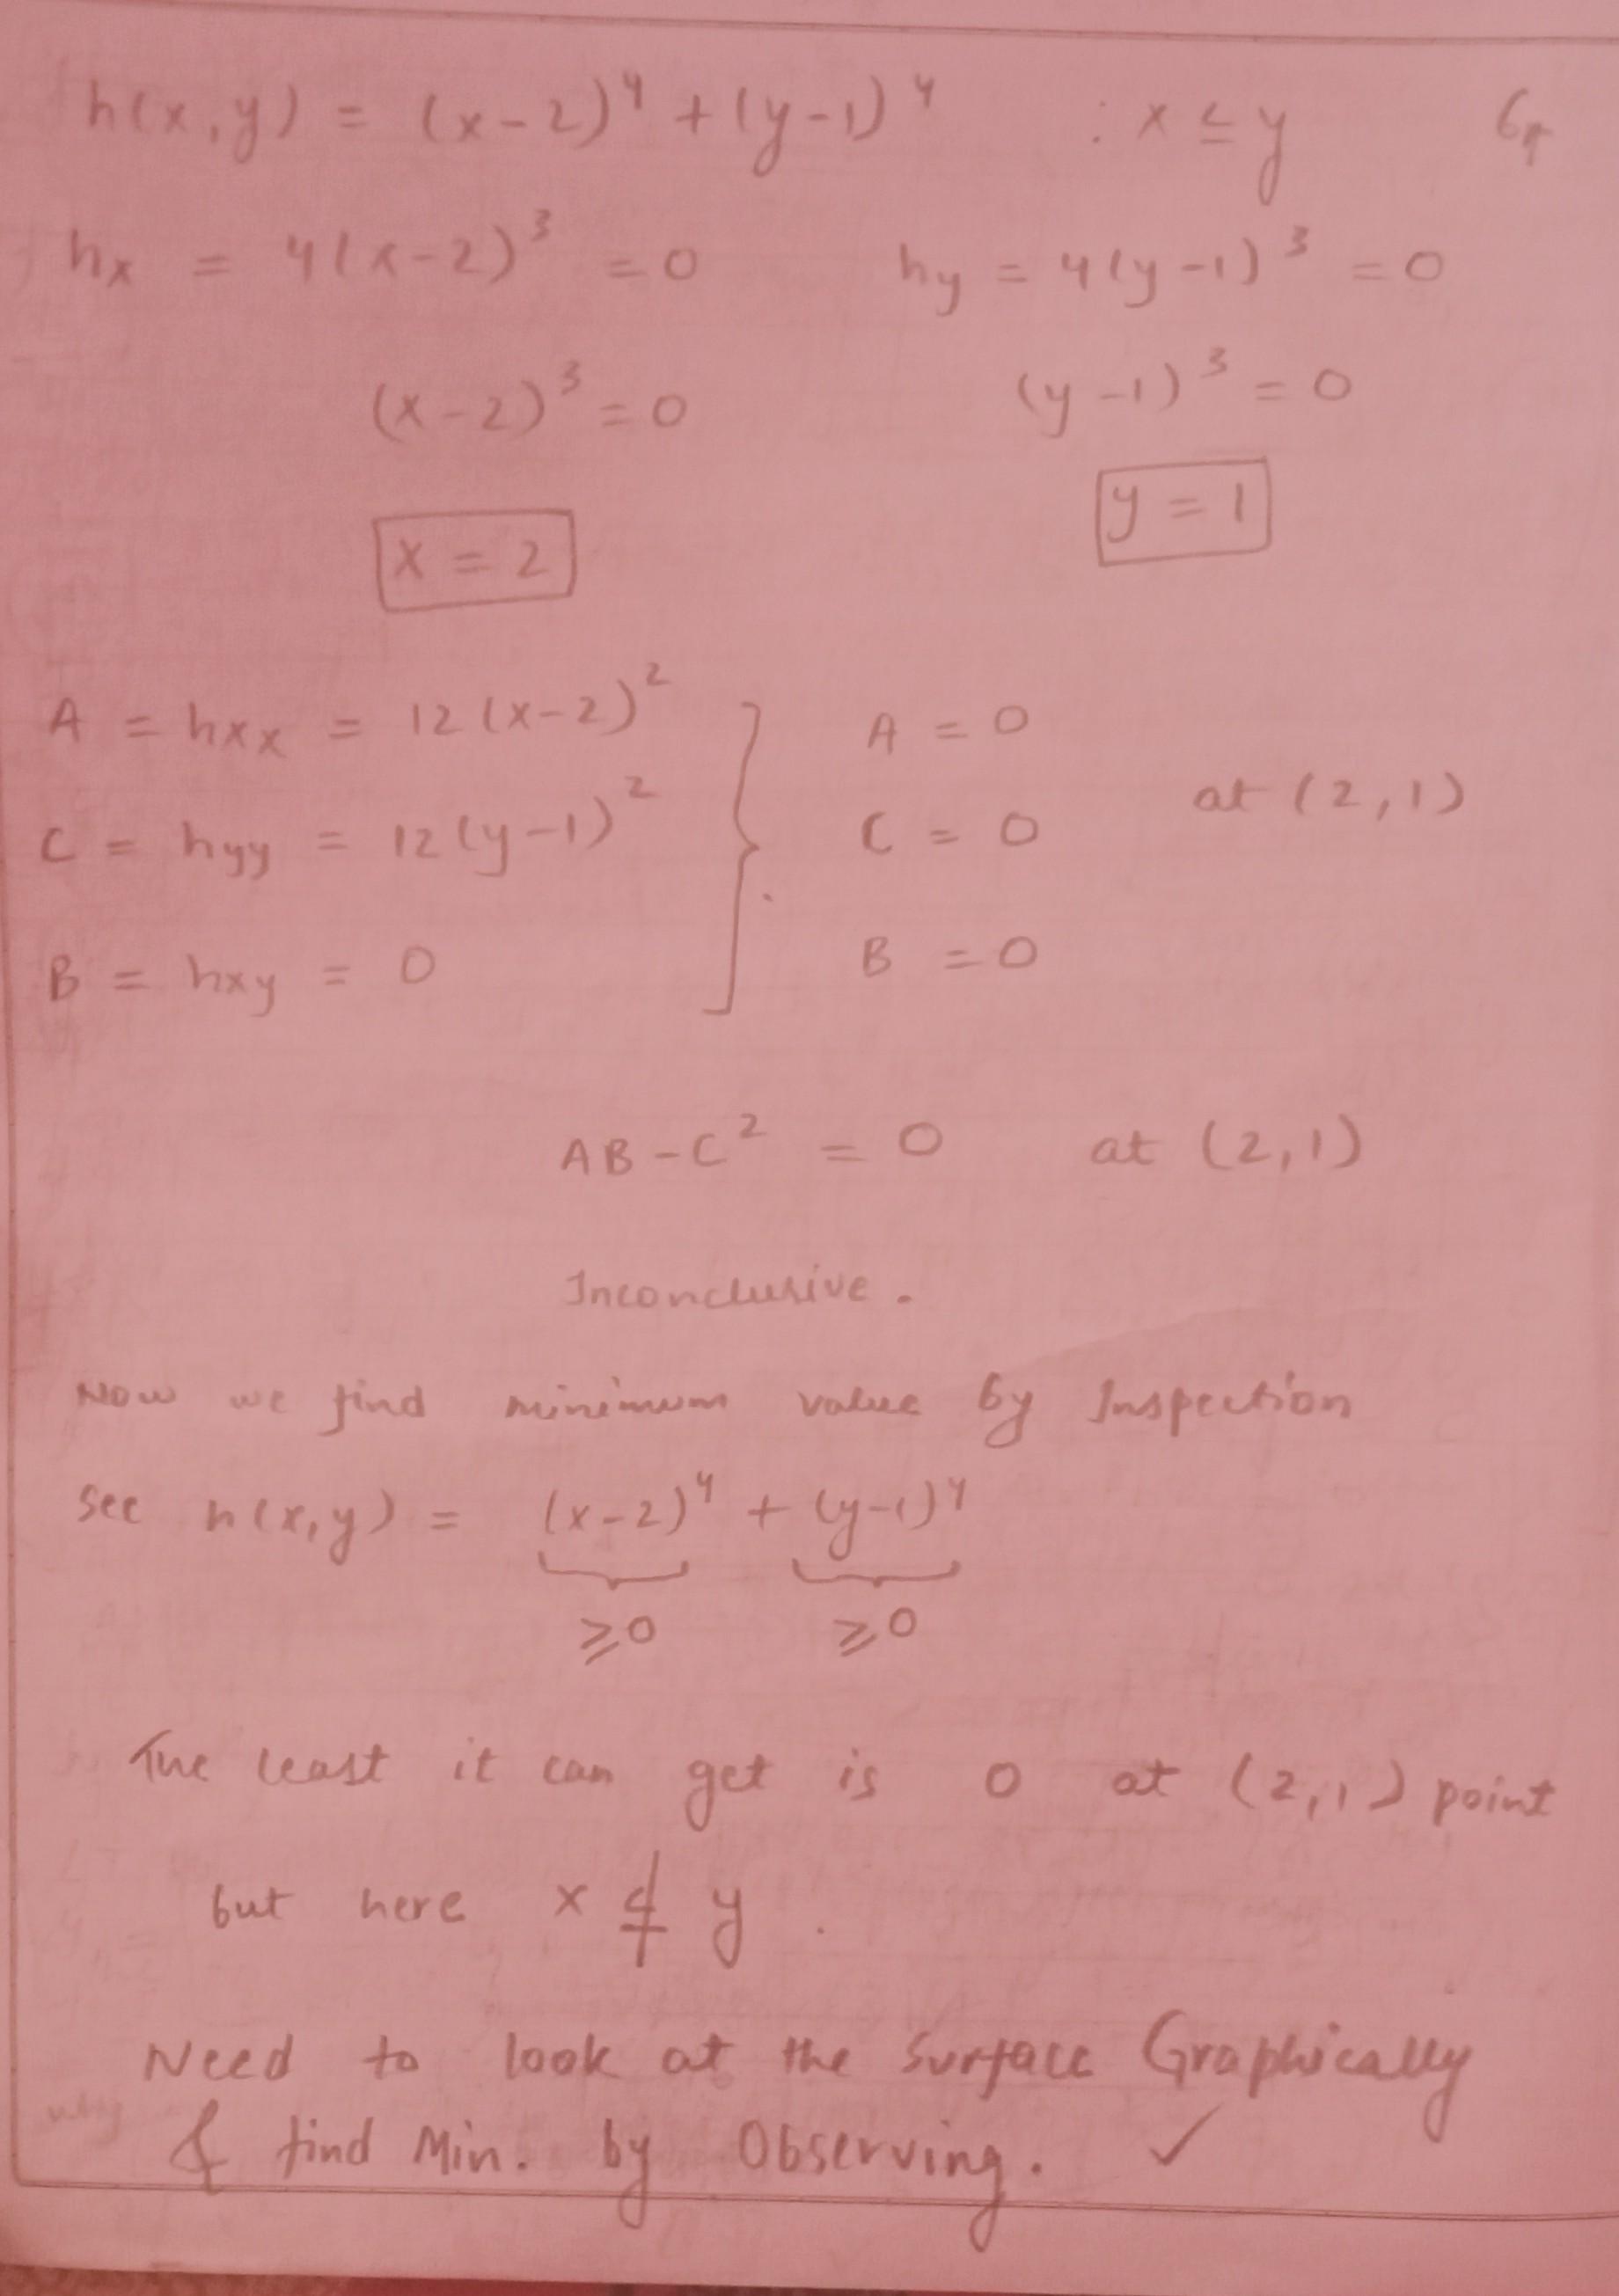 h(x,y) = (x-2)⁴ + (y-1)⁴ : x ≤ y
hx = 4(x-2)³ = 0 hy = 4(y-1)³ = 0
(x-2)³ = 0 (y-1)³ = 0
x = 2 y = 1
A = hxx = 12(x-2)² A = 0
C = hyy = 12(y-1)² C = 0 at (2,1)
B = hxy = 0 B = 0
AB - C² = 0 at (2,1)
Inconclusive.
Now we find minimum value by Inspection
See h(x,y) = (x-2)⁴ + (y-1)⁴
≥0 ≥0
The least it can get is 0 at (2,1) point
but here x ≰ y.
Need to look at the Surface Graphically
& find Min. by Observing. ✓